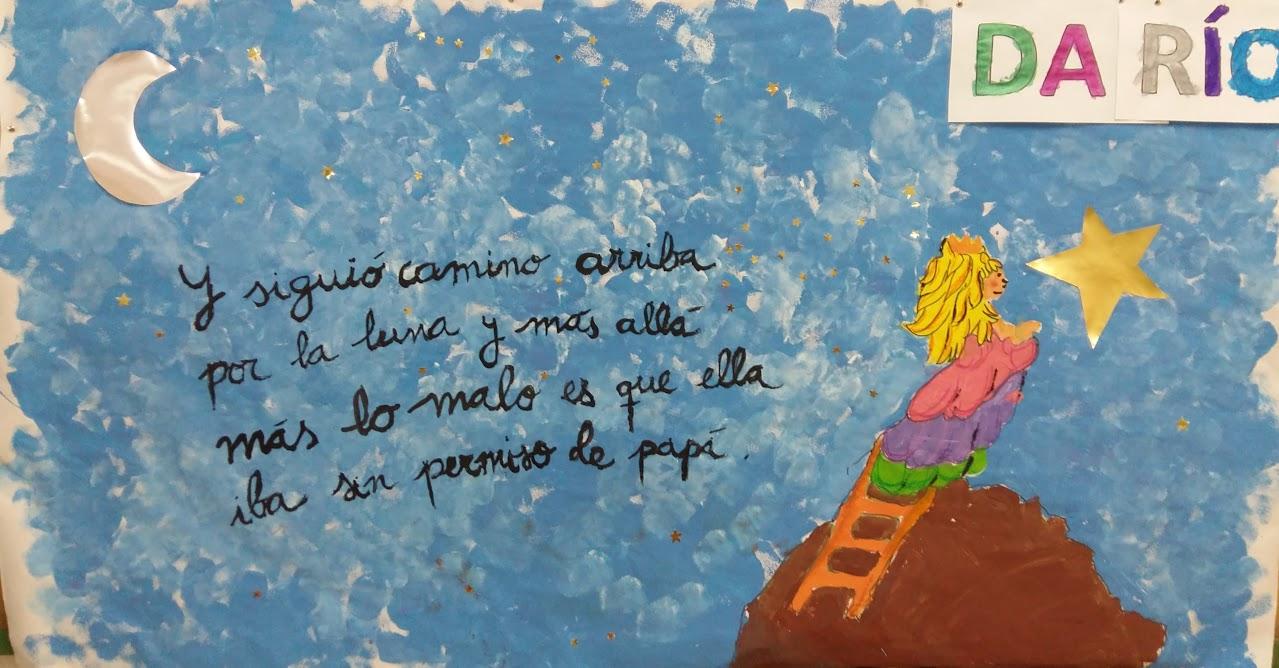 DARÍO
Y siguió camino arriba
por la luna y más allá
más lo malo es que ella
iba sin permiso de papá.